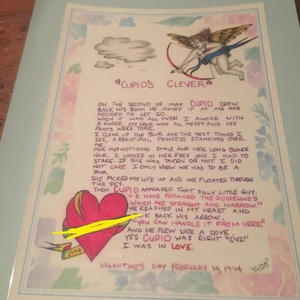 "CUPID'S CLEVER"
ON THE SECOND OF MAY CUPID DREW
BACK HIS BOW. HE AIMED IT AT ME AND
DECIDED TO LET GO.
WHEN IT WAS ALL OVER I AWOKE WITH
A SNORE, MY HAIR WAS ALL MESSY AND MY
PANTS WERE TORE.
I CLEAR UP THE BLUR AND THE NEXT THING I
SEE, A BEAUTIFUL PRINCESS STANDING OVER
ME.
HER HYPNOTIZING SMILE AND HER LONG BLONDE
HAIR. I LOOKED IN HER EYES AND I HAD TO
STARE. IF SHE WAS TAKEN OR NOT I DID
NOT CARE. I ONLY KNEW WE HAD TO BE A
PAIR.
SHE PICKED MY LIFE UP AND WE FLOATED THROUGH
THE SKY.
THEN CUPID APPEARED THAT SILLY LITTLE GUY.
"I HAVE FOLLOWED THE GUIDELINES
WHICH ARE STRAIGHT AND NARROW."
HE REACHED IN MY HEART AND
K BACK HIS ARROW.
YOU CAN HANDLE IT FROM HERE"
AND HE FLEW LIKE A DOVE
YES CUPID WAS RIGHT
I WAS IN LOVE.
VALENTINES DAY FEBRUARY 14, 1994